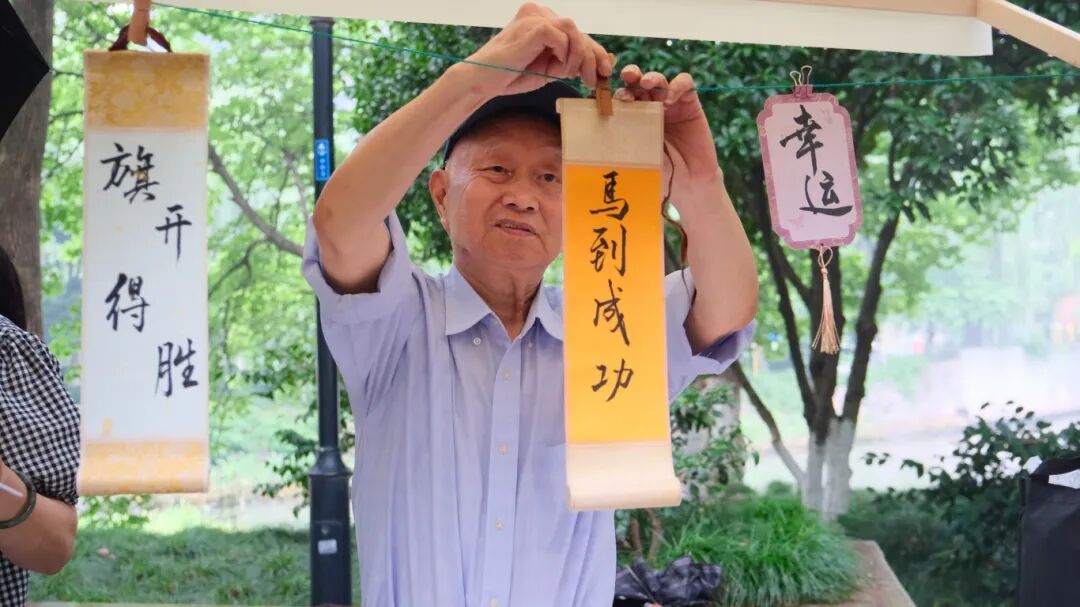 旗开得胜
馬到成功
幸运